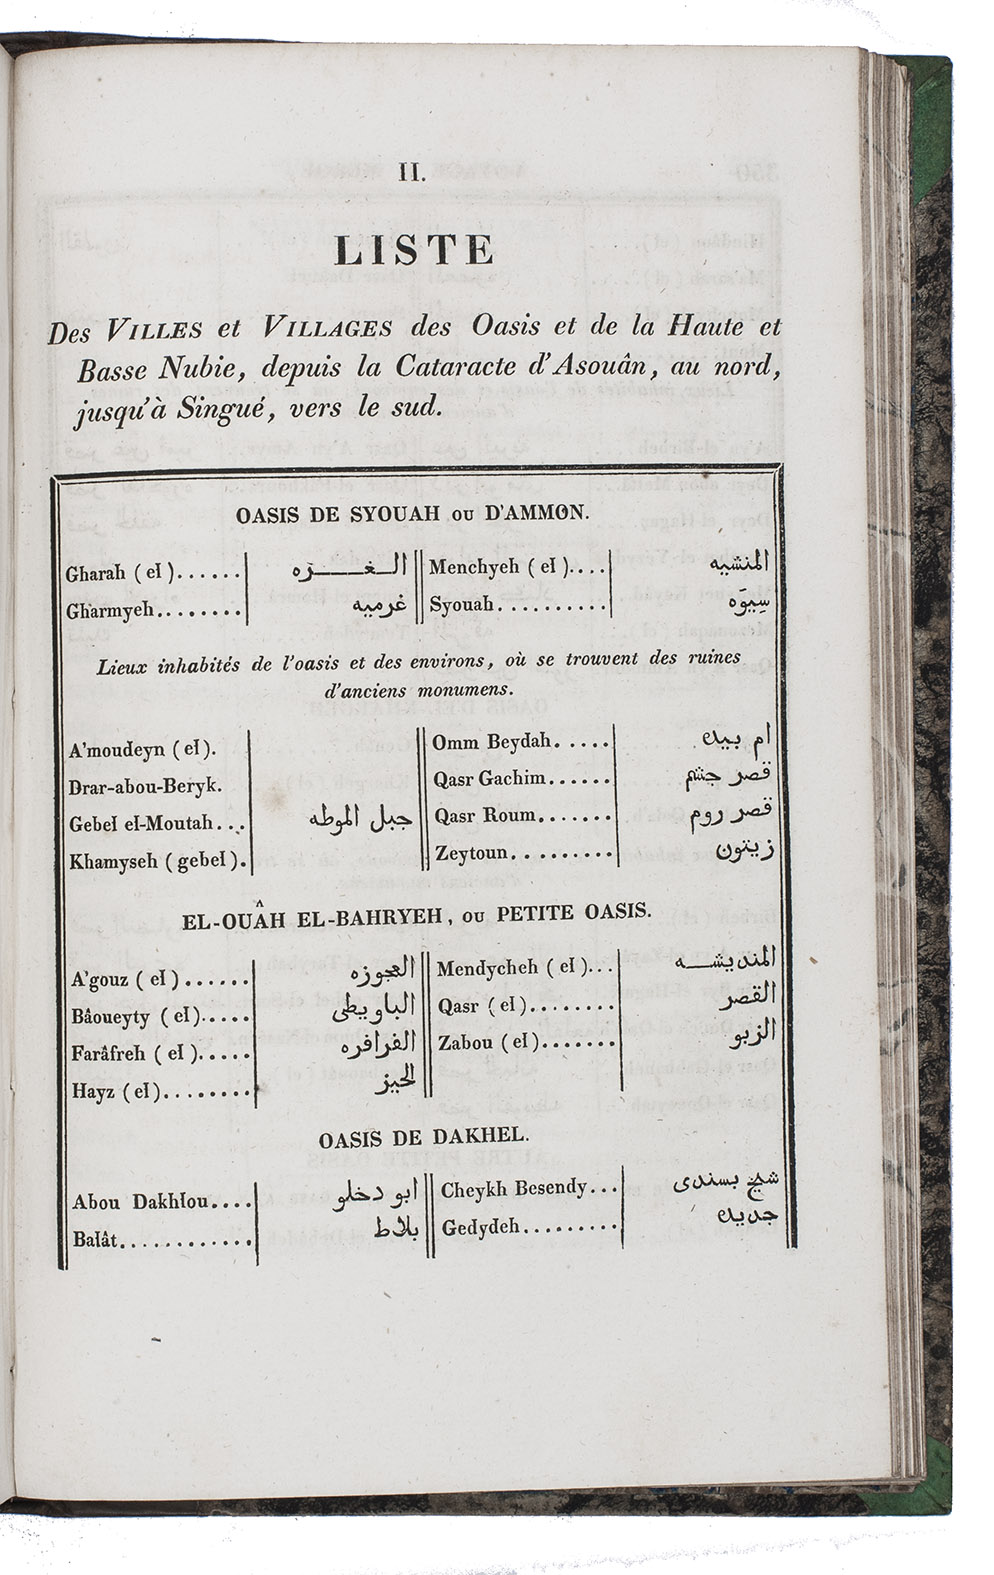 II.
LISTE
Des VILLES et VILLAGES des Oasis et de la Haute et
Basse Nubie, depuis la Cataracte d'Asouân, au nord,
jusqu'à Singué, vers le sud.
OASIS DE SYOUAH ou D'AMMON.
Gharah (el)...... الغـــره Menchyeh (el).... المنشيه
Gharmyeh........ غرميه Syouah.......... سِيوَه
Lieux inhabités de l'oasis et des environs, où se trouvent des ruines
d'anciens monumens.
A'moudeyn (el). Omm Beydah..... ام بيده
Drar-abou-Beryk. Qasr Gachim...... قصر جشم
Gebel el-Moutah... جبل الموطه Qasr Roum....... قصر روم
Khamyseh (gebel). Zeytoun......... زيتون
EL-OUÂH EL-BAHRYEH, ou PETITE OASIS.
A'gouz (el)...... العجوزه Mendycheh (el)... المنديشـه
Bâoueyty (el)..... الباويطى Qasr (el)........ القصر
Farâfreh (el)..... الفرافره Zabou (el)....... الزبو
Hayz (el)........ الحيز
OASIS DE DAKHEL.
Abou Dakhlou.... ابو دخلو Cheykh Besendy... شيخ بسندى
Balât............ بلاط Gedydeh......... جديده